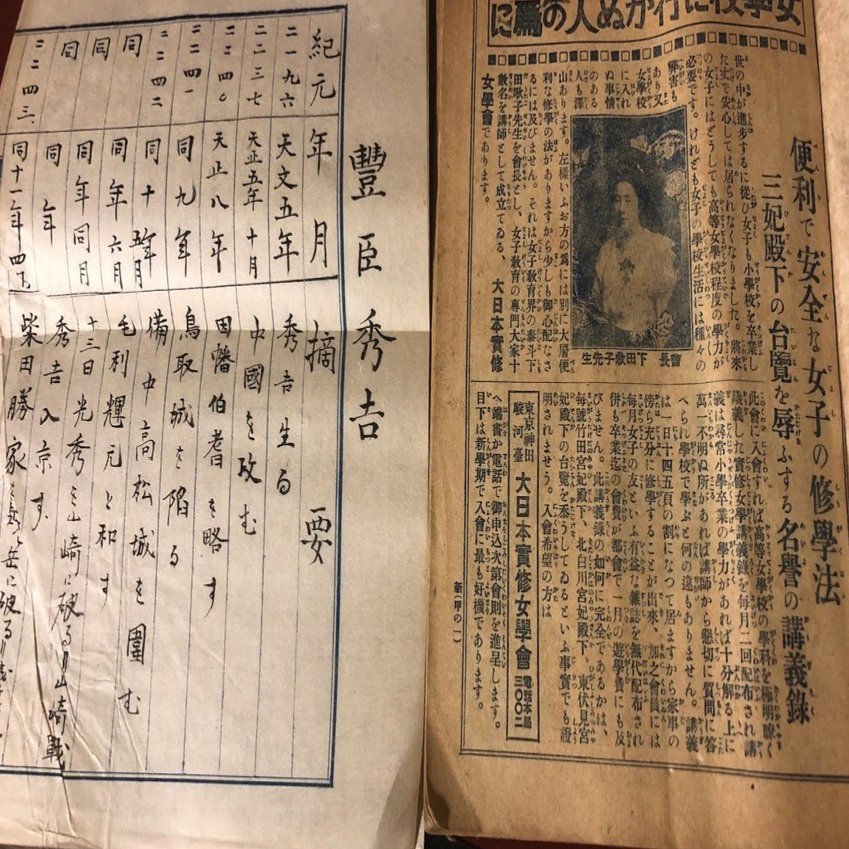 豐臣秀吉
紀元 年月 摘要
二一九六 天文五年 秀吉生る
二二三七 天正五年十月 中國を攻む
二二四〇 天正八年 因幡伯耆を略す
二二四一 同九年 鳥取城を陥る
二二四二 同十年五月 備中高松城を圍む
同 同年六月 毛利輝元と和す
同 同年同月 十三日光秀を山崎に破る(山崎戰
同 同年 秀吉入京す
二二四三 同十一年四月 柴田勝家を岳に破る
女學校に行かぬ人の爲に
便利で安全な女子の修學法
三妃殿下の台覽を辱ふする名譽の講義錄
世の中が進歩するに從ひ女子も小學校を卒業し
た丈で安心しては居られなくなりました。將來
の女子にはどうしても高等女學校程度の學力が
必要です。けれども女子の學校生活には種々の
弊害も
あり又
女學校
に入れ
ぬ事情
のある
人も澤
山あります。左樣いふお方の爲には別に大層便
利な修學の法がありますから少しも御心配なさ
るには及びません。それは女子敎育界の泰斗下
田歌子先生を會長とし、女子敎育の專門大家十
數名を講師として成立てゐる、 大日本實修
女學會であります。
會長 下田歌子先生
此會に入會すれば高等女學校の學科を極明瞭く
講義した實修女學講義錄を毎月二回配布され講
義は尋常小學卒業の學力があれば十分解る上に
萬一不明ぬ所があれば講師から懇切に質問に答
へられ學校で學ぶと何の違もありません。講義
は一日十四五頁の割になつて居ますから家事の
傍ら充分に修學することが出來、加之會員には
毎月女子の友といふ有益な雜誌を無代配布され
併も卒業迄の會費が都會で一月の遊學費にも及
びません。此講義錄の如何に完全であるかは、
毎號竹田宮妃殿下、北白川宮妃殿下、東伏見宮
妃殿下の台覽を忝うしてゐるといふ事實でも證
明されませう。入會希望の方は
東京神田駿河臺 大日本實修女學會 電話本局三〇〇二
へ端書か電話で御申込次第會則を進呈します。
目下は新學期で入會に最も好機であります。
新(甲の一)